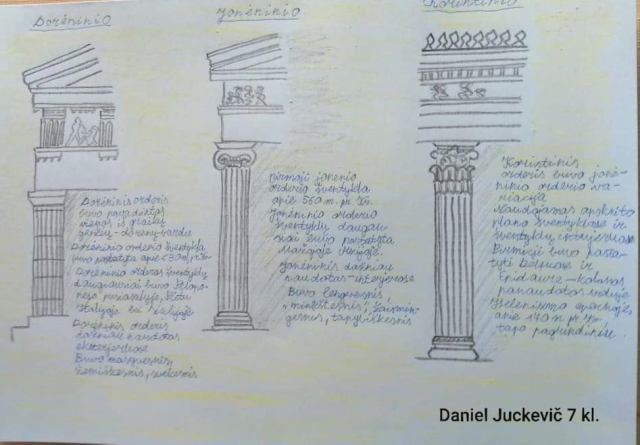 Dorėninio
Dorėninis orderis
buvo pavadintas
vienos iš graikų
genčių-dorėnų-vardu
Dorėninio orderio šventykla
buvo pastatyta apie
Dorėninio orderio šventyklų
daugiausiai buvo
pusiasalyje, Pietų
Italijoje bei Sicilijoje
Dorėninis orderis
dažniau naudotas
eksterjeruose
Buvo masyvesnis,
žemiškesnis,
Jonėninio
Pirmoji jonėnio
orderio šventykla
apie 560 m. pr. Kr.
Jonėninio orderio
šventyklų daugiau-
siai buvo pastatyta
Mažojoje Azijoje.
Jonėninis dažniau
naudotas-interjeruose
Buvo lengvesnis,
minkštesnis, žaismin-
gesnis, tapybiškesnis
Korintinio
Korintinis
orderis buvo jonė-
ninio orderio va-
riacija
Naudojamas apskrito
plano šventyklose ir
šventyklų interjeruose
Pirmieji buvo pasta-
tyti Delfuose ir
Epidaure-kolonas
panaudotas viduje
Helenizmo epochoje,
apie 170 m. pr. Kr.
tapo pagrindiniu.
Daniel Juckevič 7 kl.